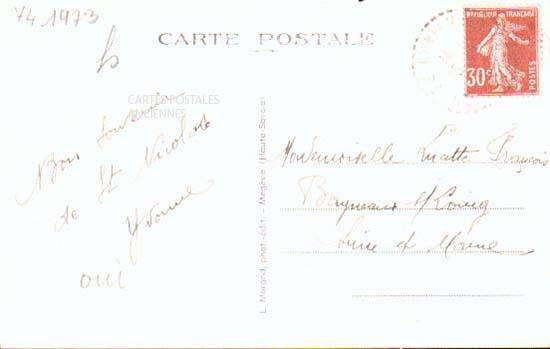 74 1973
CARTE POSTALE
REPUBLIQUE FRANÇAISE
30c
POSTES
CARTES POSTALES
ANCIENNES
Bon Souvenir
de St Nicolas
Yvonne
oui
L. Morand, phot.-édit. - Megève (Haute-Savoie)
Mademoiselle
Bagneaux s/Loing
Seine et Marne